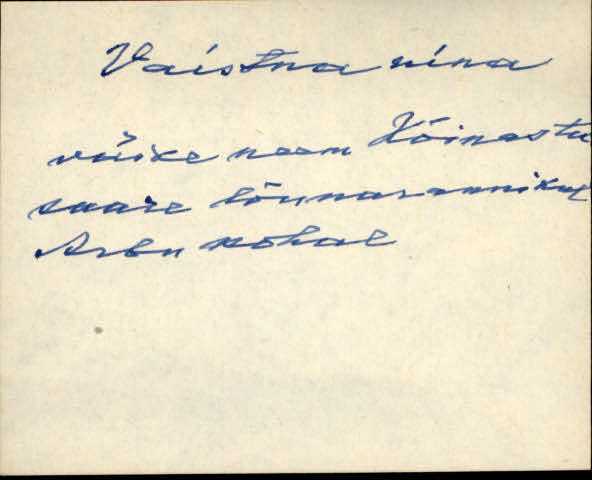 Vaistna nina
väike neem Kõinastu
saare lõunarannikul
Arbu kohal